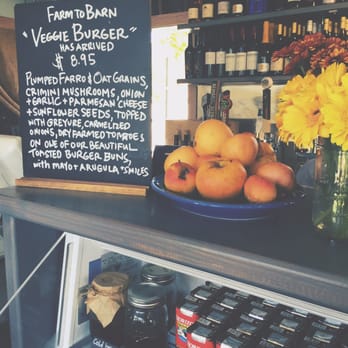 FARM TO BARN
"VEGGIE BURGER"
HAS ARRIVED
$ 8.95
PLUMPED FARRO & OAT GRAINS,
CRIMINI MUSHROOMS, ONION
+ GARLIC + PARMESAN CHEESE
+ SUNFLOWER SEEDS, TOPPED
WITH GREYURE CARMELIZED
ONIONS, DRY FARMED TOMATOES
ON ONE OF OUR BEAUTIFUL
TOASTED BURGER BUNS,
with mayo + ARUGULA + SMILES
Cold